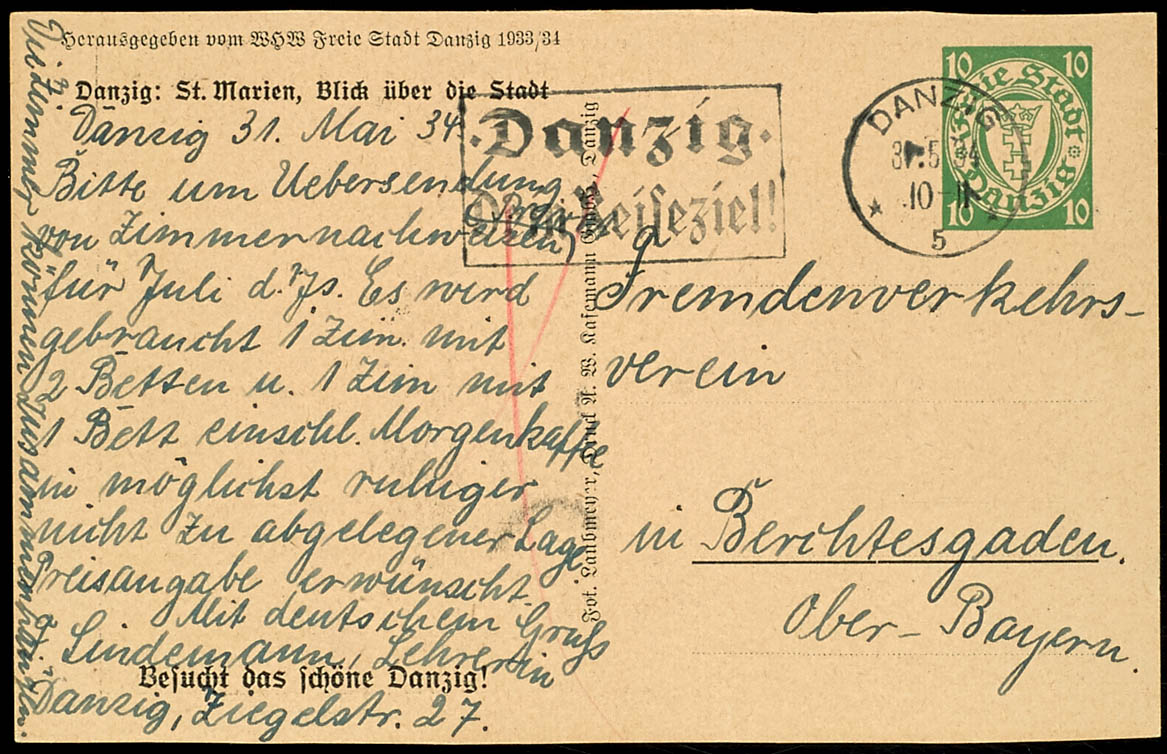 Herausgegeben vom WHW Freie Stadt Danzig 1933/34
Danzig: St. Marien, Blick über die Stadt
Danzig 31. Mai 34.
Bitte um Uebersendung
von Zimmernachweisen
für Juli d. Js. Es wird
gebraucht 1 Zim. mit
2 Betten u. 1 Zim mit
1 Bett einschl. Morgenkaffee
in möglichst ruhiger
nicht zu abgelegener Lage
Preisangabe erwünscht.
Mit deutschem Gruß
Lindemann, Lehrerin
Besucht das schöne Danzig!
Danzig, Ziegelstr. 27.
Die Zimmer können zusammenhängen.
Fot. Laubmeyer, Druck A. W. Kafemann GmbH, Danzig
·Danzig·
Dein Reiseziel!
DANZIG
31.5.34
10-11
5
10 10
Freie Stadt
Danzig
10 10
Fremdenverkehrs-
verein
in Berchtesgaden.
Ober-Bayern.